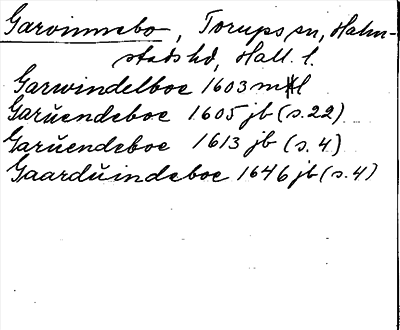 Garvinnebo, Torups sn, Halm-
stads hd, Hall. l.
Garwindelboe 1603 mtl
Garŭendeboe 1605 jb (s. 22)
Garŭendeboe 1613 jb (s. 4)
Gaardŭindeboe 1646 jb (s. 4)